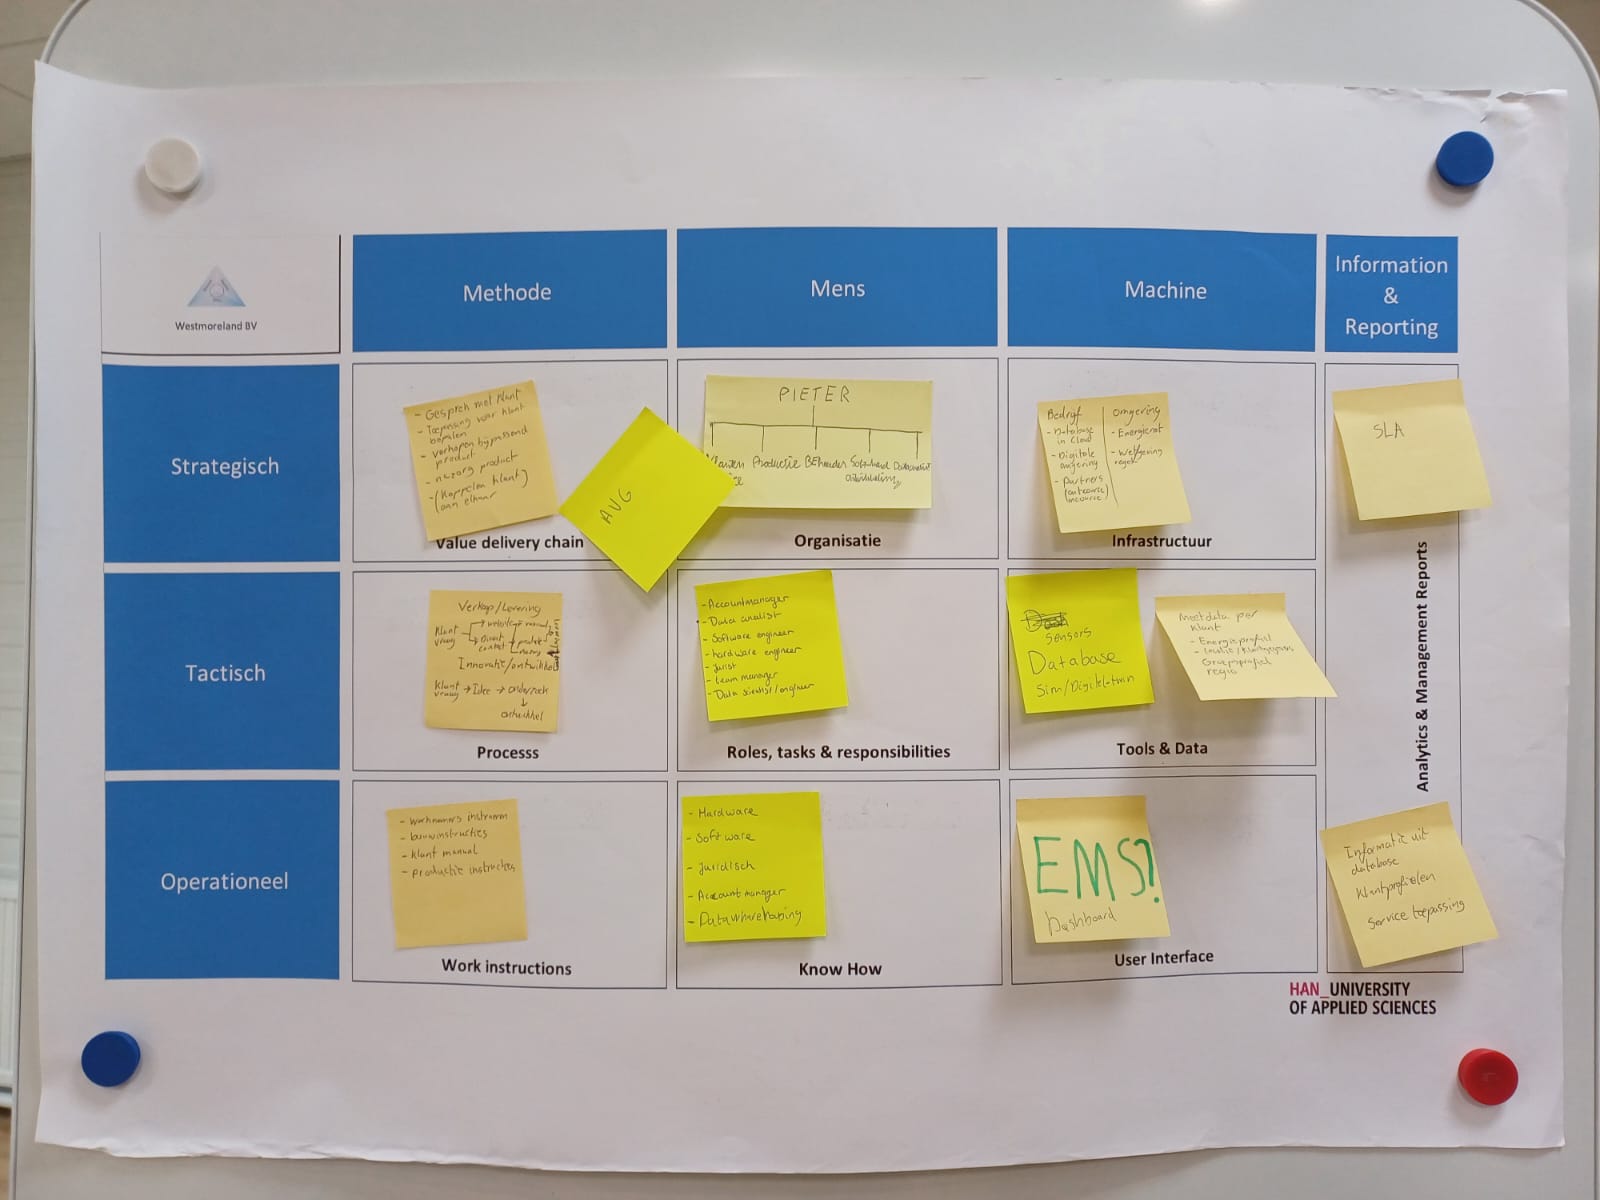 Westmoreland BV
Methode
Mens
Machine
Information
&
Reporting
Strategisch
- Gesprek met klant
- Toepassing voor klant
bepalen
- verkopen bijpassend
product
- nazorg product
- (Koppelen klant)
aan elkaar
Value delivery chain
AVG
PIETER
Productie
Organisatie
Bedrijf
- Database
in Cloud
- Digitale
omgeving
- Partners
Omgeving
- Energienet
- Wetgeving
regels
Infrastructuur
SLA
Tactisch
Verkoop/Levering
Klant
vraag
Direct
contact
Innovatie/ontwikkel
Klant
vraag → Idee → onderzoek
↓
ontwikkel
Processs
- Accountmanager
- Data analist
- Software engineer
- hardware engineer
- jurist
- team manager
Roles, tasks & responsibilities
sensors
Database
Sim/Digital-twin
Meetdata per
klant
- Energieprofiel
regio
Tools & Data
Analytics & Management Reports
Operationeel
- bouwinstructies
- klant manual
- productie instructies
Work instructions
- Hardware
- Software
- Juridisch
- Account manager
Know How
EMS?
Dashboard
User Interface
Informatie uit
database
Klantprofielen
Service toepassing
HAN_UNIVERSITY
OF APPLIED SCIENCES